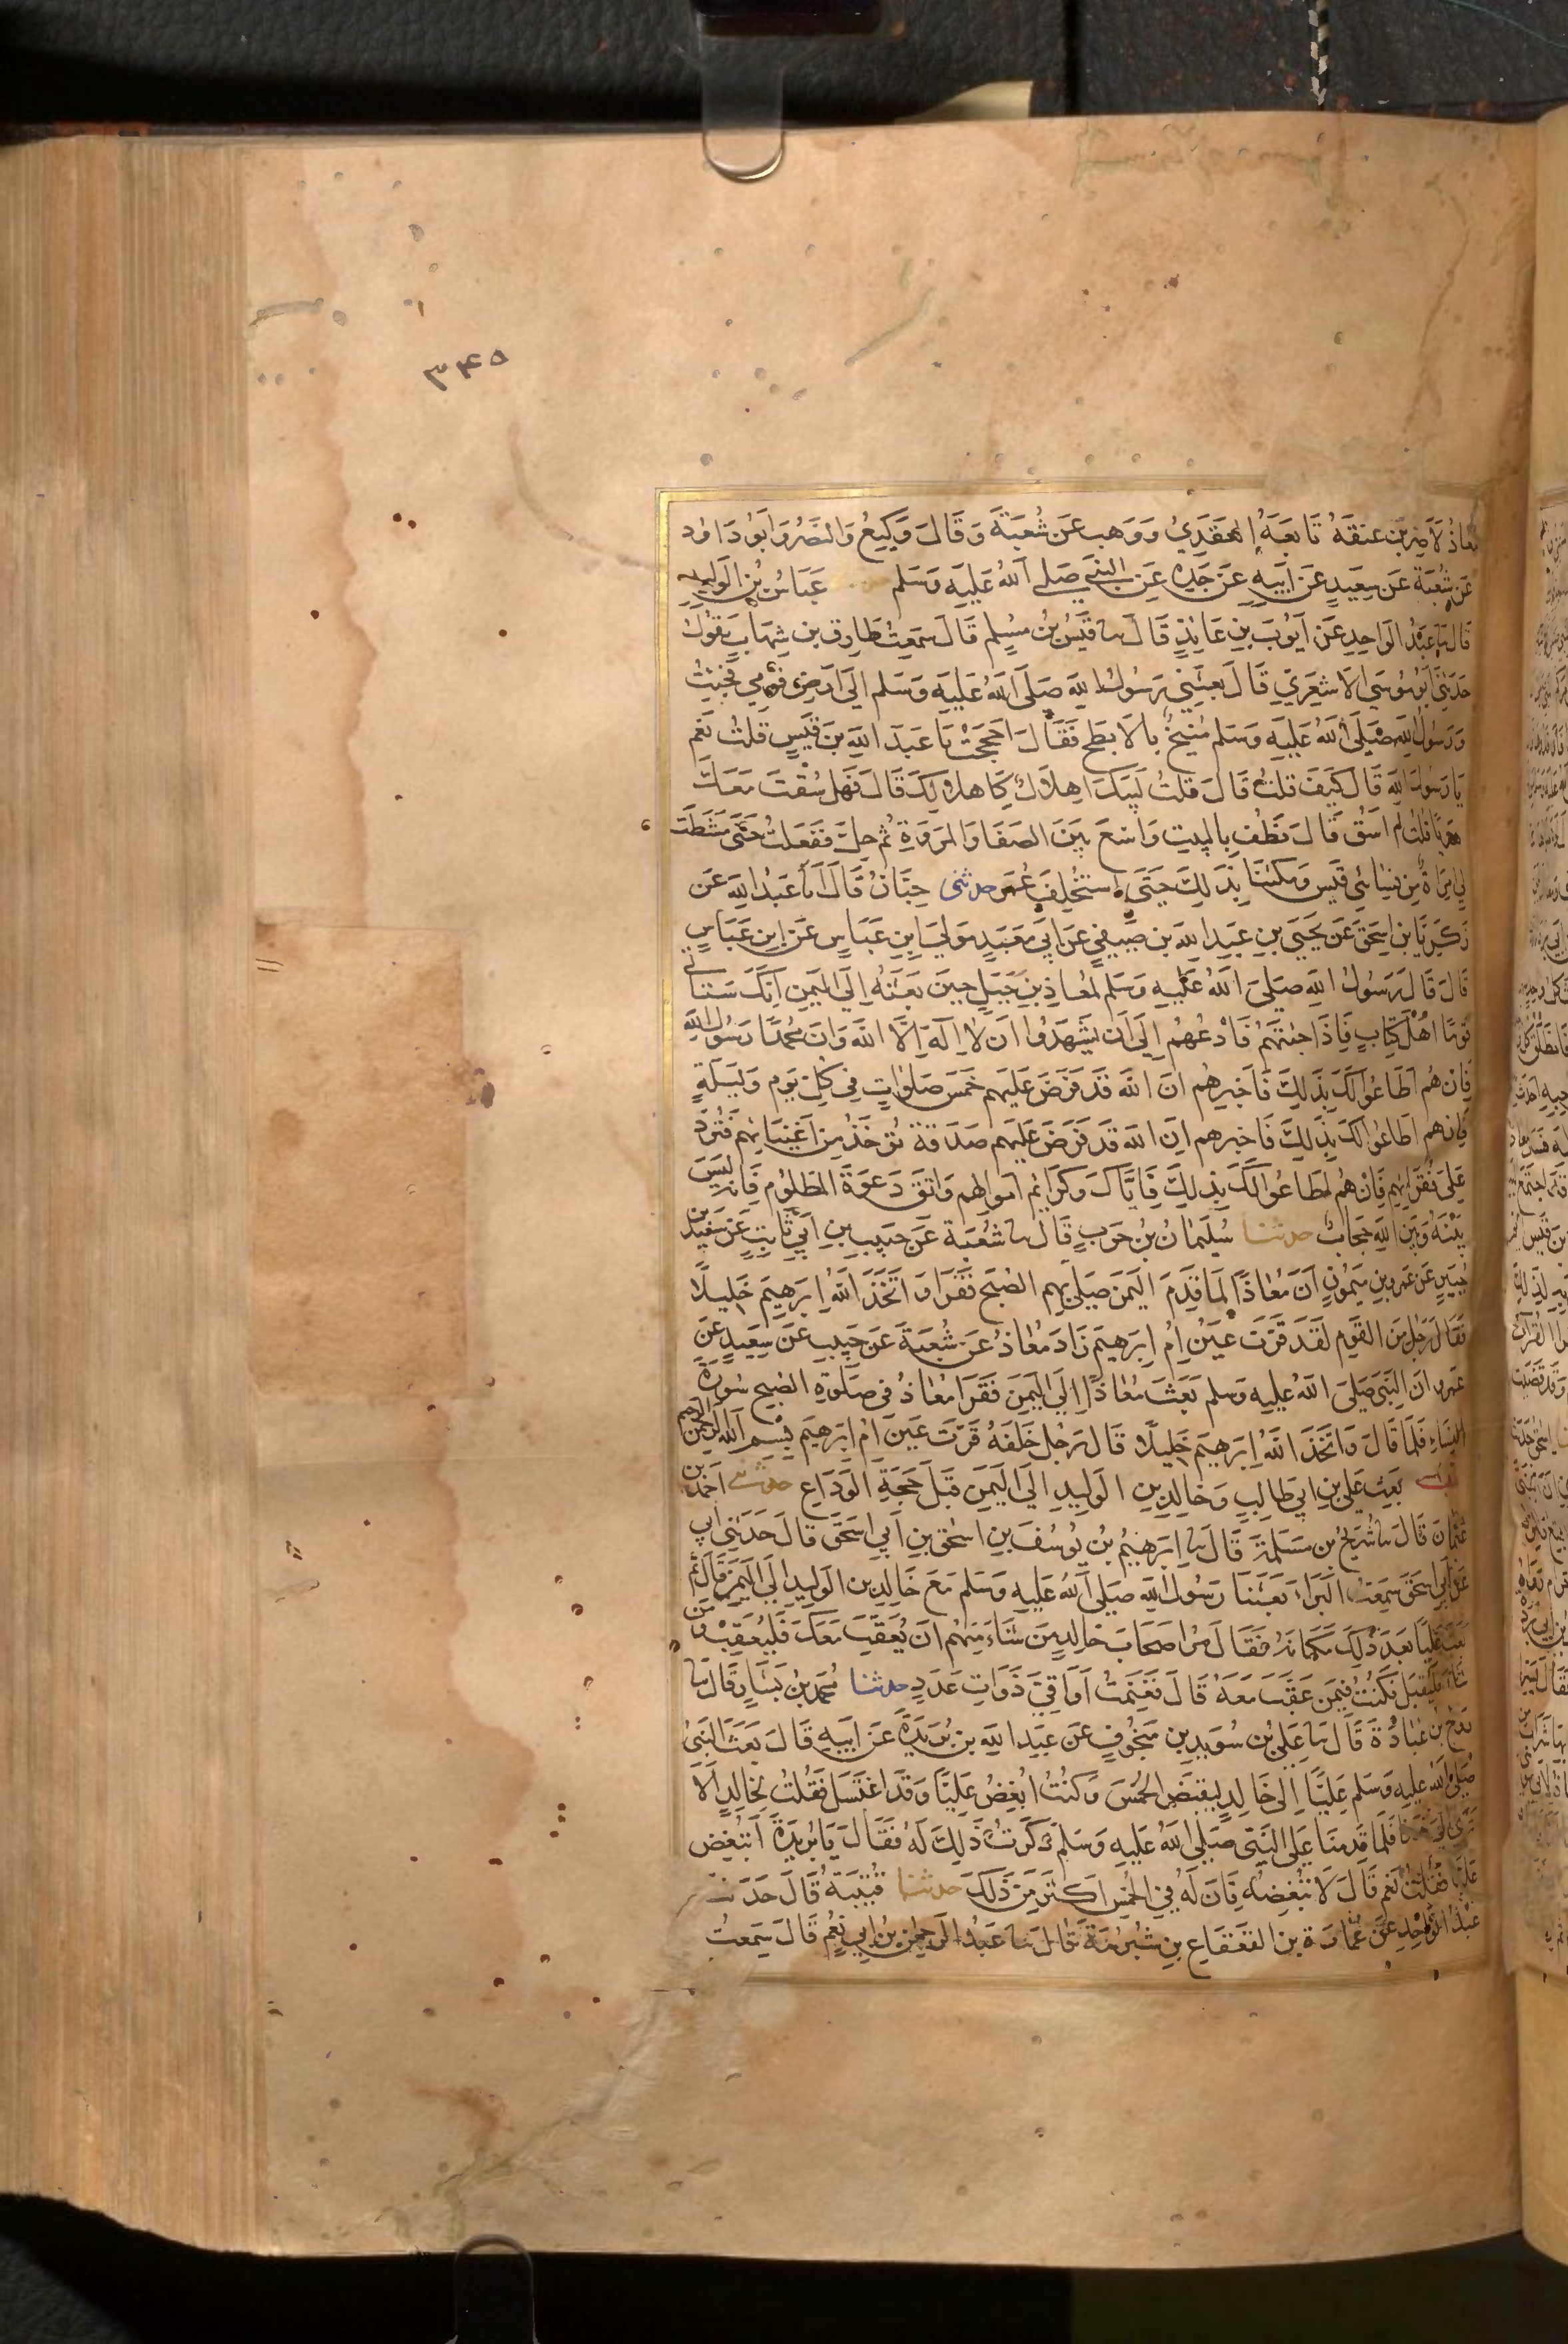 ۳۴۵
معاذ لاضربن عنقه تابعه العقدي ووهب عن شعبة وقال وكيع والنضر وابو داود
عن شعبة عن سعيد عن ابيه عن جده عن النبي صلى الله عليه وسلم عباس بن الوليد
قال ثنا عبد الواحد عن ايوب بن عايذ قال ثنا قيس بن مسلم قال سمعت طارق بن شهاب يقول
حدثني ابو موسى الاشعري قال بعثني رسول الله صلى الله عليه وسلم الى ارض قومي فجئت
ورسول الله صلى الله عليه وسلم منيخ بالابطح فقال احججت يا عبد الله بن قيس قلت نعم
يا رسول الله قال كيف قلت قال قلت لبيك اهلال كاهلالك قال فهل سقت معك
هديا قلت لم اسق قال فطف بالبيت واسع بين الصفا والمروة ثم حل ففعلت حتى مشطت
لي امراة من نساء بني قيس ومكثنا بذلك حتى استخلف عمر حدثني حبان قال انا عبد الله عن
زكريا بن اسحق عن يحيى بن عبد الله بن صيفي عن ابي معبد مولى ابن عباس عن ابن عباس
قال قال رسول الله صلى الله عليه وسلم لمعاذ بن جبل حين بعثه الى اليمن انك ستاتي
قوما اهل كتاب فاذا جئتهم فادعهم الى ان يشهدوا ان لا اله الا الله وان محمدا رسول الله
فان هم اطاعوا لك بذلك فاخبرهم ان الله قد فرض عليهم خمس صلوات في كل يوم وليلة
فان هم اطاعوا لك بذلك فاخبرهم ان الله قد فرض عليهم صدقة تؤخذ من اغنيائهم فترد
على فقرائهم فان هم اطاعوا لك بذلك فاياك وكرائم اموالهم واتق دعوة المظلوم فانه ليس
بينه وبين الله حجاب حدثنا سليمان بن حرب قال ثنا شعبة عن حبيب بن ابي ثابت عن سعيد بن
جبير عن عمرو بن ميمون ان معاذا لما قدم اليمن صلى بهم الصبح فقرا واتخذ الله ابرهيم خليلا
فقال رجل من القوم لقد قرت عين ام ابرهيم زاد معاذ عن شعبة عن حبيب عن سعيد عن
عمرو ان النبي صلى الله عليه وسلم بعث معاذا الى اليمن فقرا معاذ في صلوة الصبح سورة
النساء فلما قال واتخذ الله ابرهيم خليلا قال رجل خلفه قرت عين ام ابرهيم بسم الله الرحمن الرحيم
باب بعث علي بن ابي طالب وخالد بن الوليد الى اليمن قبل حجة الوداع حدثني احمد بن
عثمان قال ثنا شريح بن مسلمة قال ثنا ابرهيم بن يوسف بن اسحق بن ابي اسحق قال حدثني ابي
عن ابي اسحق سمعت البراء بعثنا رسول الله صلى الله عليه وسلم مع خالد بن الوليد الى اليمن قال ثم
بعث عليا بعد ذلك مكانه فقال مر اصحاب خالد من شاء منهم ان يعقب معك فليعقب ومن
شاء فليقبل فكنت فيمن عقب معه قال فغنمت اواقي ذوات عدد حدثنا محمد بن بشار قال ثنا
روح بن عبادة قال ثنا علي بن سويد بن منجوف عن عبد الله بن بريدة عن ابيه قال بعث النبي
صلى الله عليه وسلم عليا الى خالد ليقبض الخمس وكنت ابغض عليا وقد اغتسل فقلت لخالد الا
ترى الى هذا فلما قدمنا على النبي صلى الله عليه وسلم ذكرت ذلك له فقال يا بريدة اتبغض
عليا فقلت نعم قال لا تبغضه فان له في الخمس اكثر من ذلك حدثنا قتيبة قال حدثنا
عبد الواحد عن عمارة بن القعقاع بن شبرمة قال ثنا عبد الرحمن بن ابي نعم قال سمعت